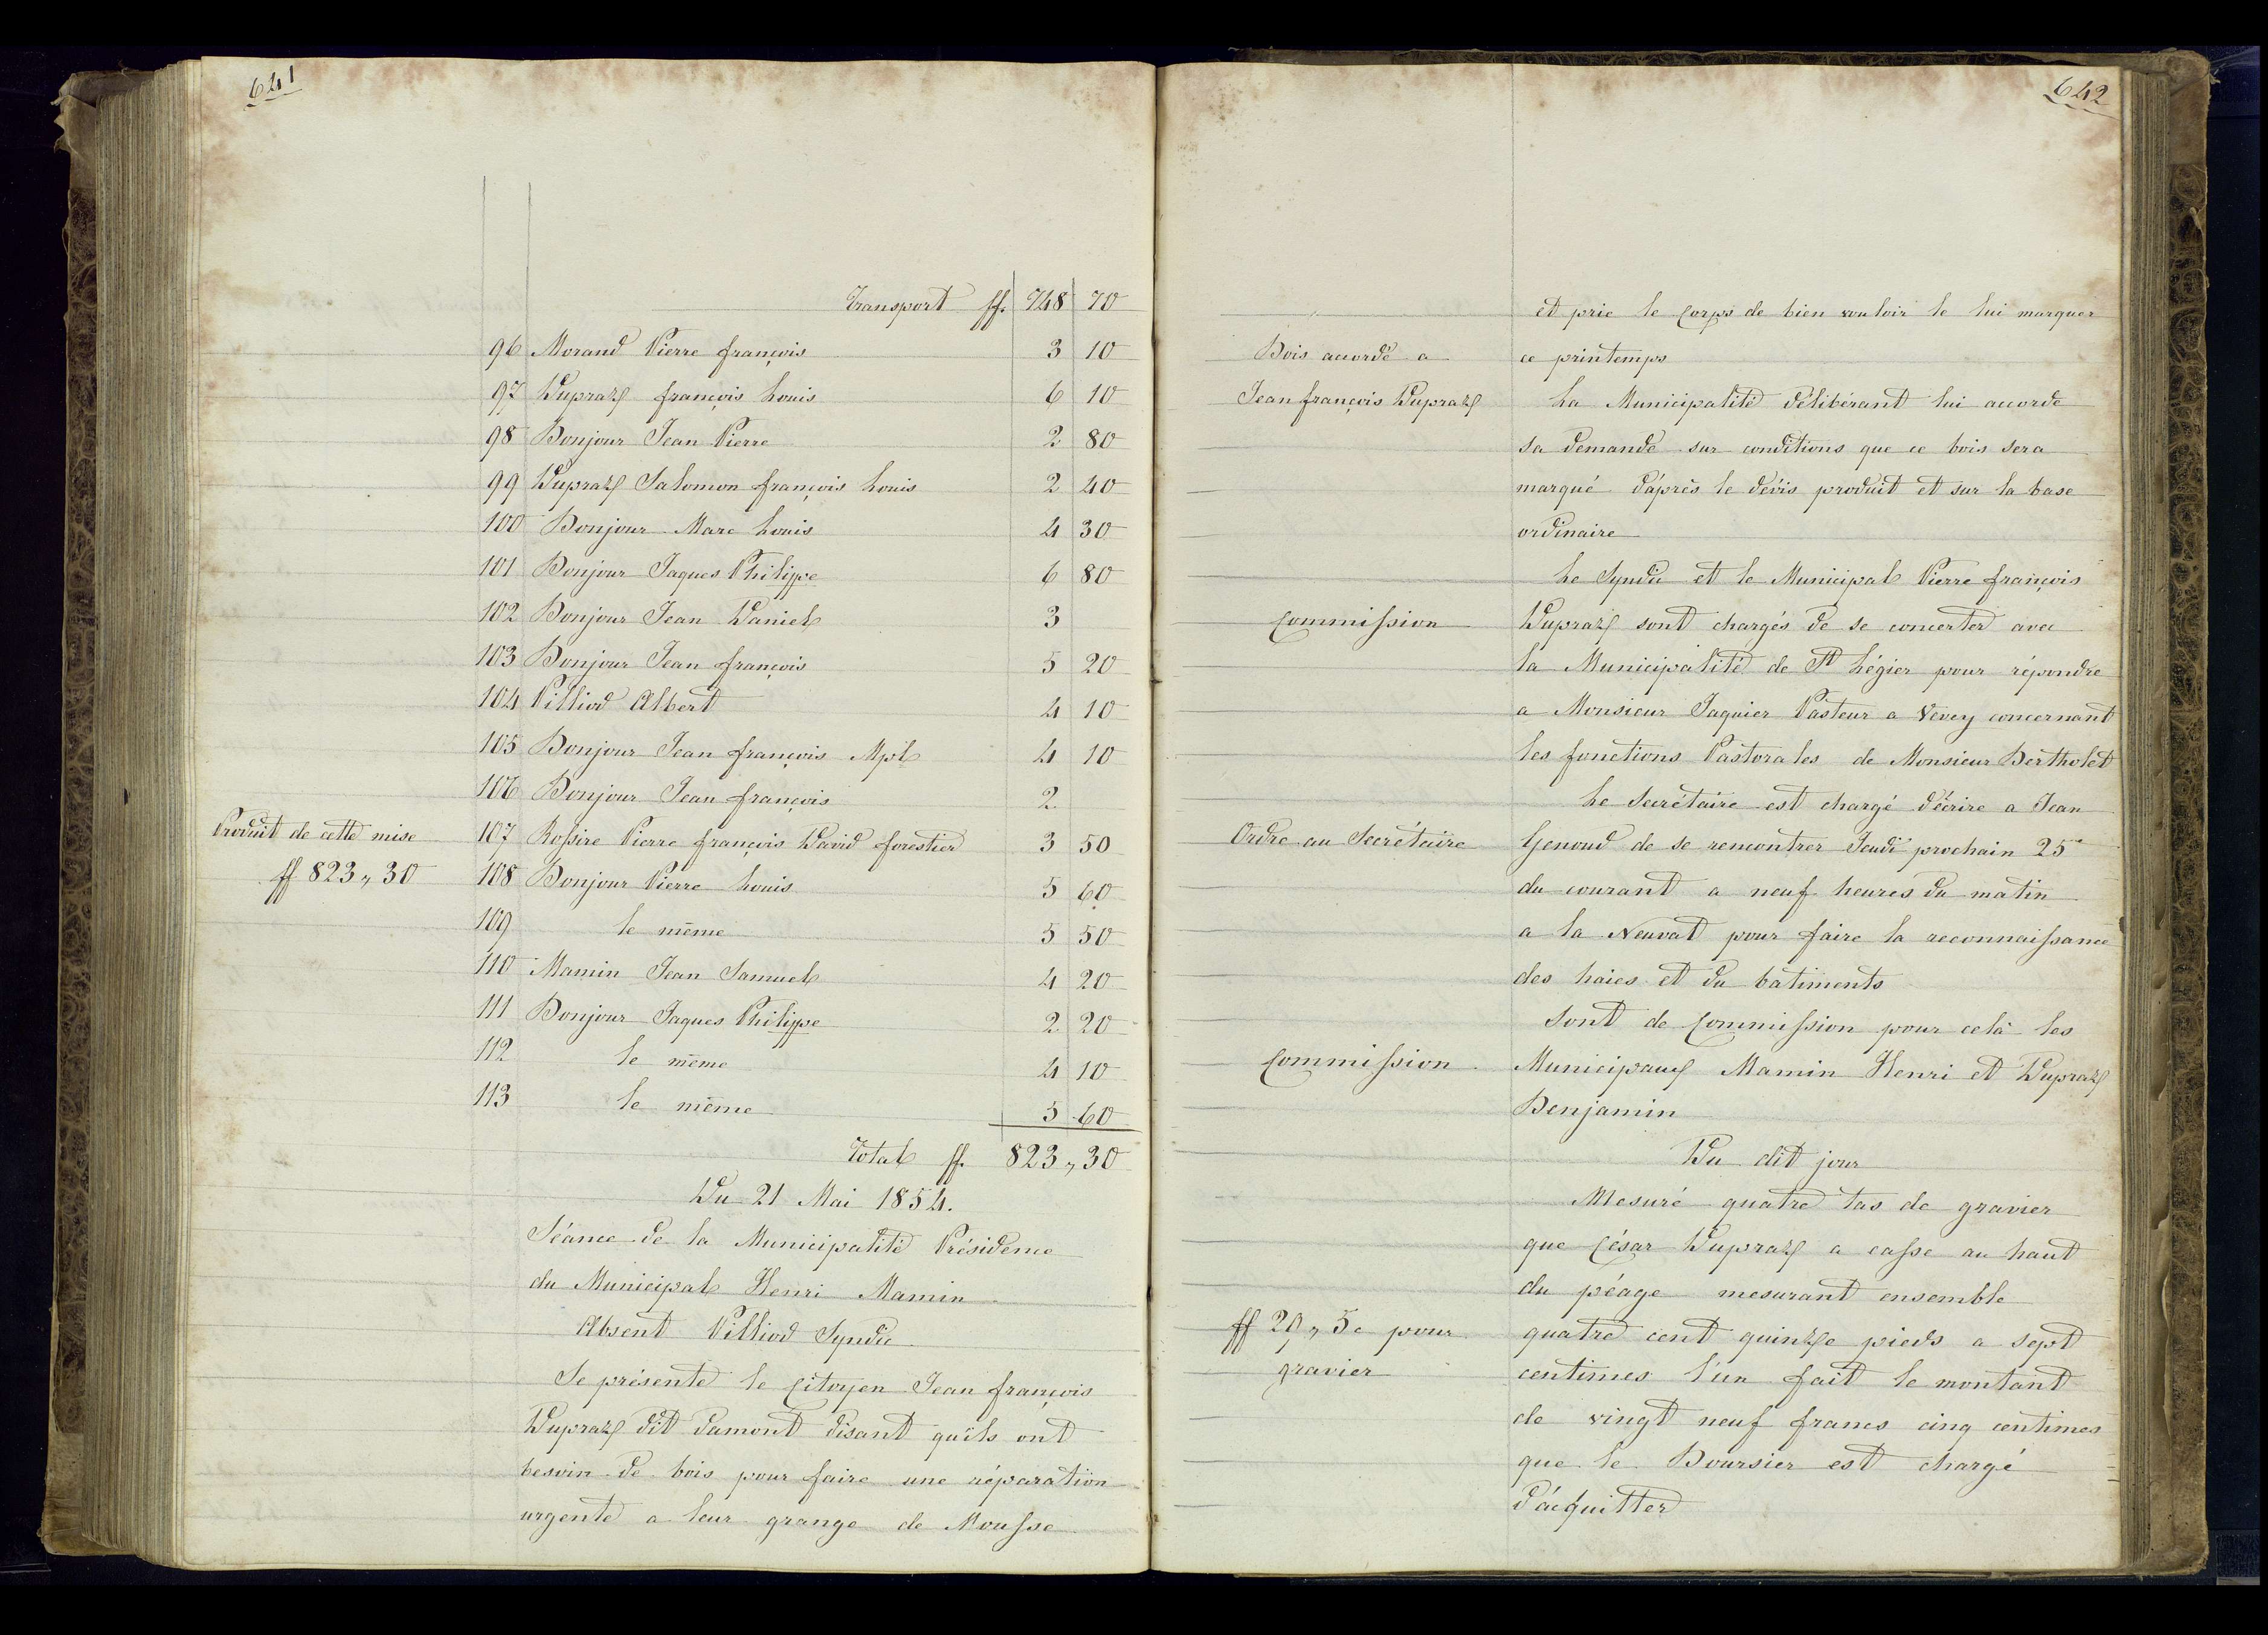 641
Transport ff. 748 70
96 Morand Pierre françois 3 10
97 Dupraz françois Louis 6 10
98 Bonjour Jean Pierre 2 80
99 Dupraz Salomon françois Louis 2 40
100 Bonjour Marc Louis 4 30
101 Bonjour Jaques Philippe 6 80
102 Bonjour Jean Daniel 3
103 Bonjour Jean françois 5 20
104 Pilliod Albert 4 10
105 Bonjour Jean françois Mpl 4 10
106 Bonjour Jean françois 2
Produit de cette mise
ff 823,, 30
107 Rossire Pierre françois David forestier 3 50
108 Bonjour Pierre Louis 5 60
109 le même 5 50
110 Mamin Jean Samuel 4 20
111 Bonjour Jaques Philippe 2 20
112 le même 4 10
113 le même 5 60
Total ff. 823,, 30
Du 21 Mai 1854.
Séance de la Municipalité Présidence
du Municipal Henri Mamin
Absent Pilliod Syndic
Se présente le Citoyen Jean françois
Dupraz dit Damont disant qu'ils ont
besoin de bois pour faire une réparation
urgente a leur grange de Mousse
642
et prie le Corps de bien vouloir le lui marquer
Bois accordé a
Jean françois Dupraz
ce printemps
La Municipalité délibérant lui accorde
sa demande sur conditions que ce bois sera
marqué d'après le dévis produit et sur la base
ordinaire
Le Syndic et le Municipal Pierre françois
Commission
Dupraz sont chargés de se concerter avec
la Municipalité de St Légier pour répondre
a Monsieur Jaquier Pasteur a Vevey concernant
les fonctions Pastorales de Monsieur Bertholet
Le Secrétaire est chargé d'écrire a Jean
Ordre au Secrétaire
Genoud de se rencontrer Jeudi prochain 25e
du courant a neuf heures du matin
a la Neuvat pour faire la reconnaissance
des haies et du batiments
Sont de Commission pour celà les
Commission
Municipaux Mamin Henri et Dupraz
Benjamin
Du dit jour
Mesuré quatre tas de gravier
que César Dupraz a casse au haut
du péage mesurant ensemble
ff 29,, 5c pour
gravier
quatre cent quinze pieds a sept
centimes l'un fait le montant
de vingt neuf francs cinq centimes
que le Boursier est chargé
d'acquitter